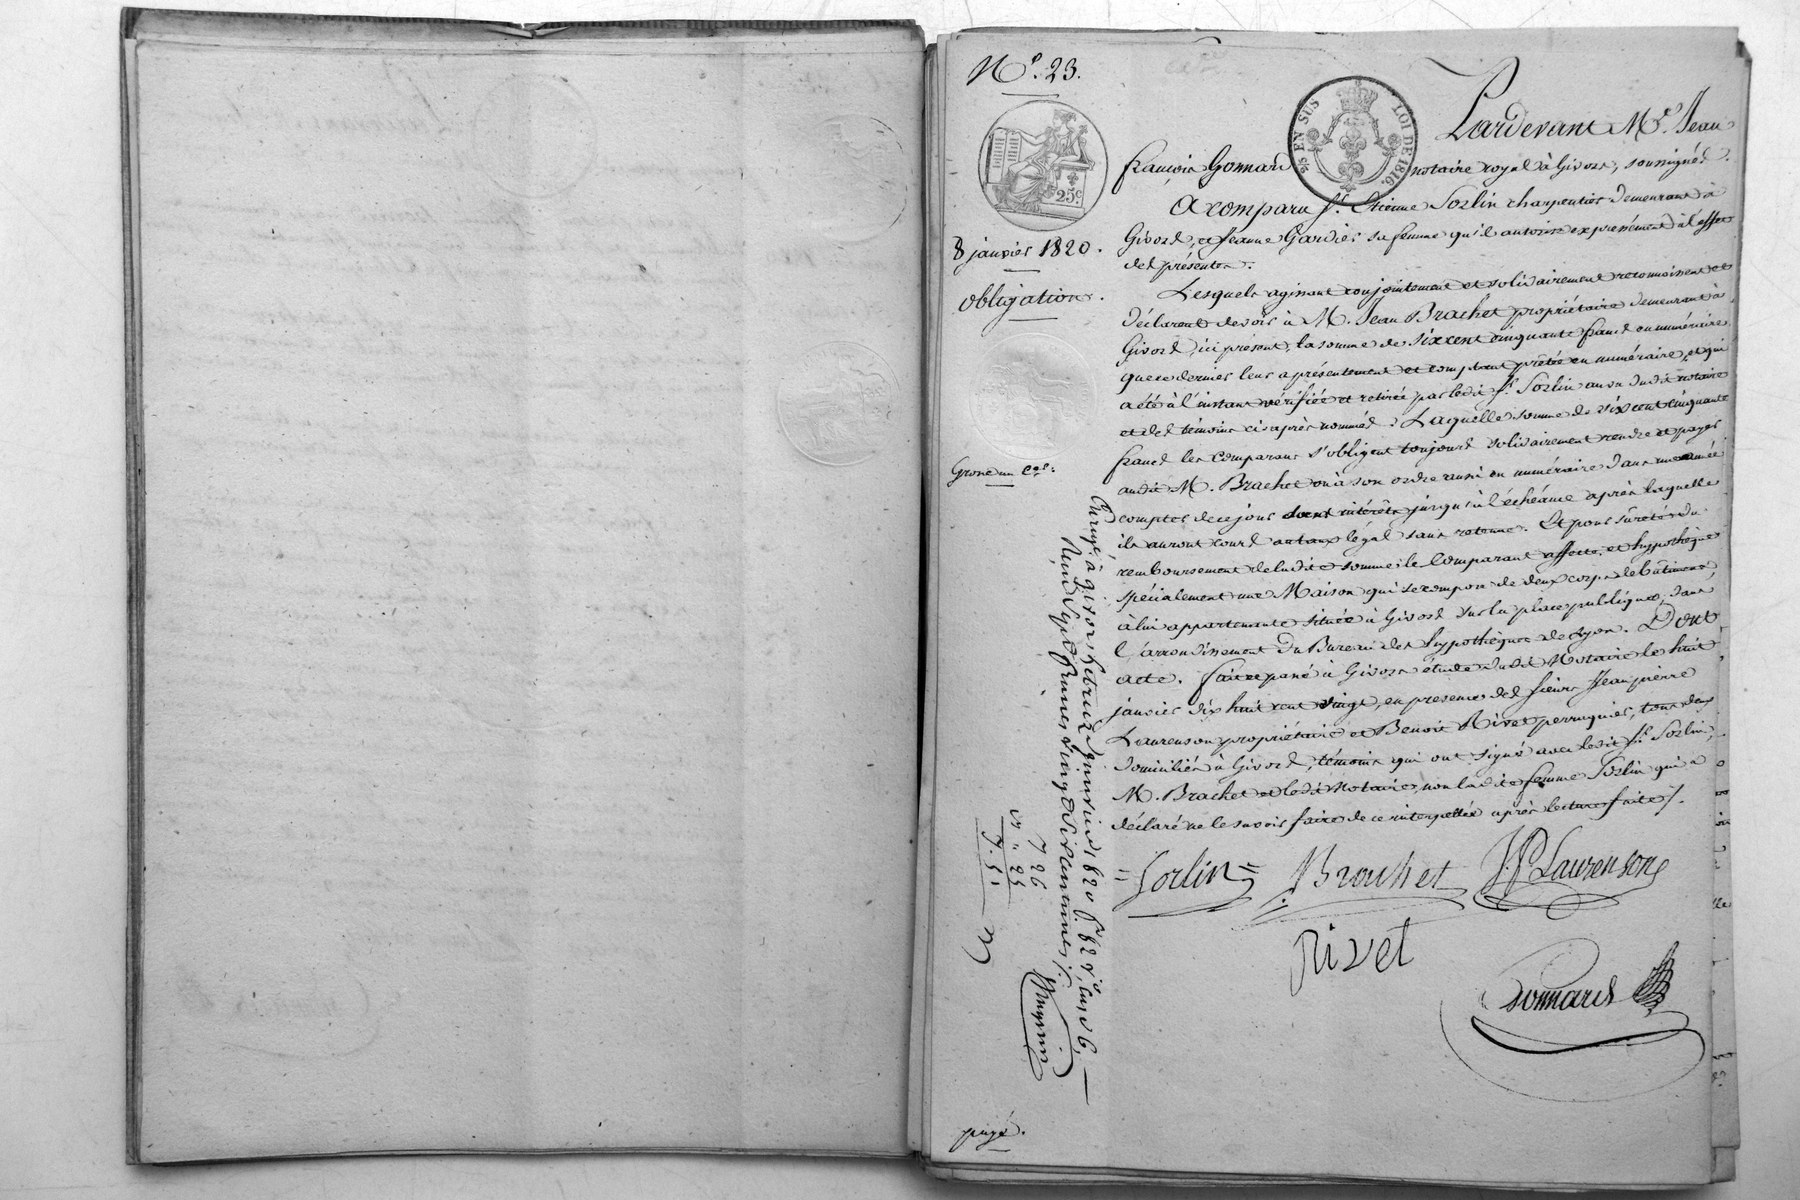 N.° 23.
25.c
⅖ EN SUS LOI DE 1816.
8 janvier 1820.
obligation.
Grosse un
Pardevant M.e Jean
françois Gonnard notaire royal à Givors, soussigné.
A comparu s.r Etienne Sorlin charpentier demeurant à
Givors, et Jeanne Gardier sa femme qu'il autorise expressément à l'effet
des présentes.
Lesquels agissant conjointement et solidairement reconnoissent et
déclarent devoir à M. Jean Brachet propriétaire demeurant à
Givors, ici présent, la somme de six cent cinquante francs en numéraire
que ce dernier leur a présentement et comptant prêtée en numéraire, et qui
a été à l'instant vérifiée et retirée par ledit s.r Sorlin au vu dudit notaire
et des témoins ci après nommés. Laquelle somme de six cent cinquante
francs les comparans s'obligent toujours solidairement rendre et payer
audit M. Brachet ou à son ordre aussi en numéraire dans une année
à compter de ce jour sans intérêts jusqu'à l'échéance après laquelle
ils auront cours au taux légal sans retenue. Et pour sûreté du
remboursement de ladite somme le comparant affecte et hypothèque
spécialement une Maison qui se compose de deux corps de bâtiment,
à lui appartenante située à Givors sur la place publique, dans
l'arrondissement du Bureau des hypothèques de Lyon. Dont
acte. fait et passé à Givors étude dudit Notaire le huit
janvier dix huit cent vingt, en présence des sieurs Jean pierre
Laurenson propriétaire et Benoit Rivet perruquier, tous deux
domiciliés à Givors, témoins qui ont signé avec ledit s.r Sorlin,
M. Brachet et ledit Notaire, non ladite femme Sorlin qui a
déclaré ne le savoir faire de ce interpellée après lecture faite /.
= Sorlin = Brachet J.P Laurenson
Rivet
Gonnard
Enrég. à givors le treize janvier 1820 f.o 82 v.o, Cases 6,
Reçu Sept francs vingt six centimes /.
7 26
25
7.51
payé.